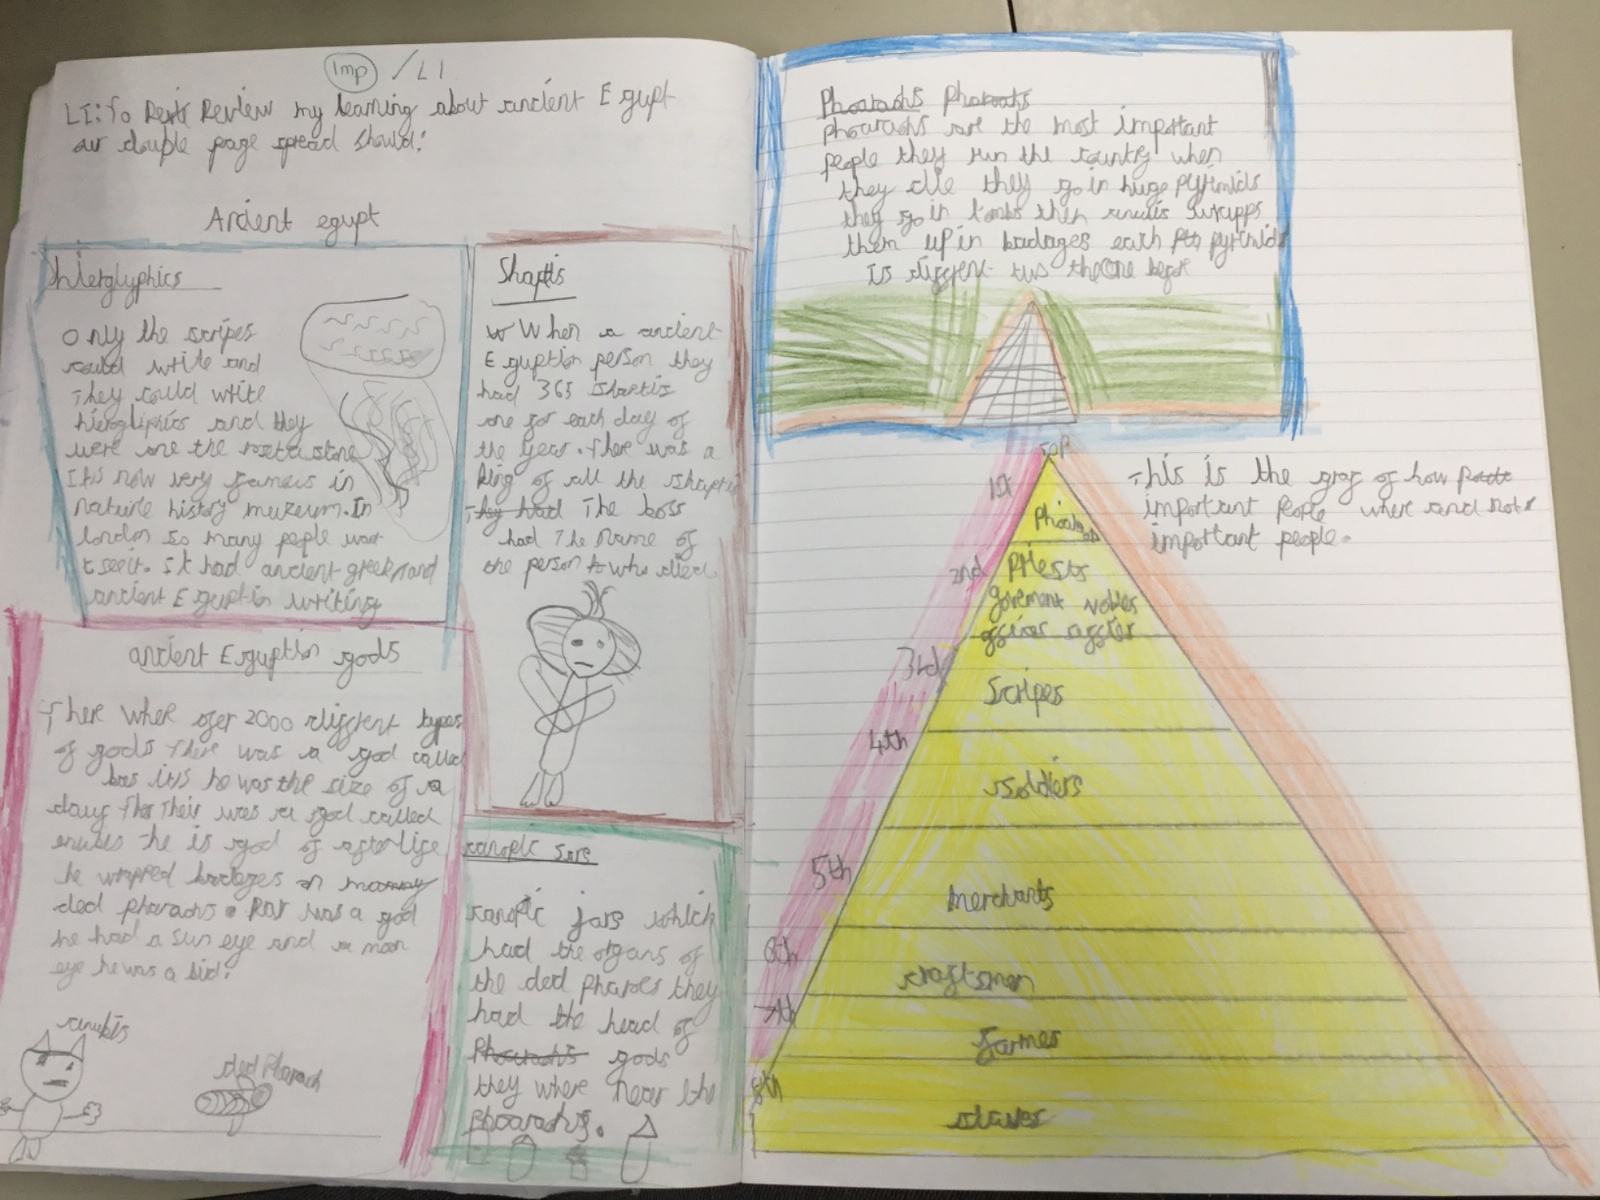 Imp / LI
LI: To Review my learning about ancient Egupt
our double page spread should:
Ancient egupt
hierglyphics
Only the scripes
could write and
They could write
hierogliphics and they
were one the roseta stone
It is now very famous in
nature history muzeum. In
london so many people want
t see it. It had ancient greek and
ancient Eguptin writing
ancient Eguption gods
There where ofer 2000 different types
of gods There was a god called
bas he was the size of a
Their was a god called
enubes he is god of afterlife
he wrapped badages
ded pharaohs. Ray was a god
he had a sun eye and a moon
eye he was a bird.
anubis
ded Pharaoh
Shaptis
When a ancient
Eguption person they
had 365 shaptis
one for each day of
the year. There was a
king of all the shaptis
They had The boss
had The name of
the person who died.
canopic
canopic jars which
had the organs of
the ded pharoes they
had the head of
Pharaohs gods
they where near the
phoarohs.
Phoaraohs Pharoahs
phoaraohs are the most important
people they run the country when
they die they go in huge pyrimids
they go in tombs then anubis wrapps
them up in badages each pyrimids
is diffrent the one befor
This is the graf of how
important people where and not
important people.
TOP
1st
2nd Priests
goverment nobles
3rd
scripes
4th
soldiers
5th
merchants
6th
craftsmen
7th
farmes
8th
slaves